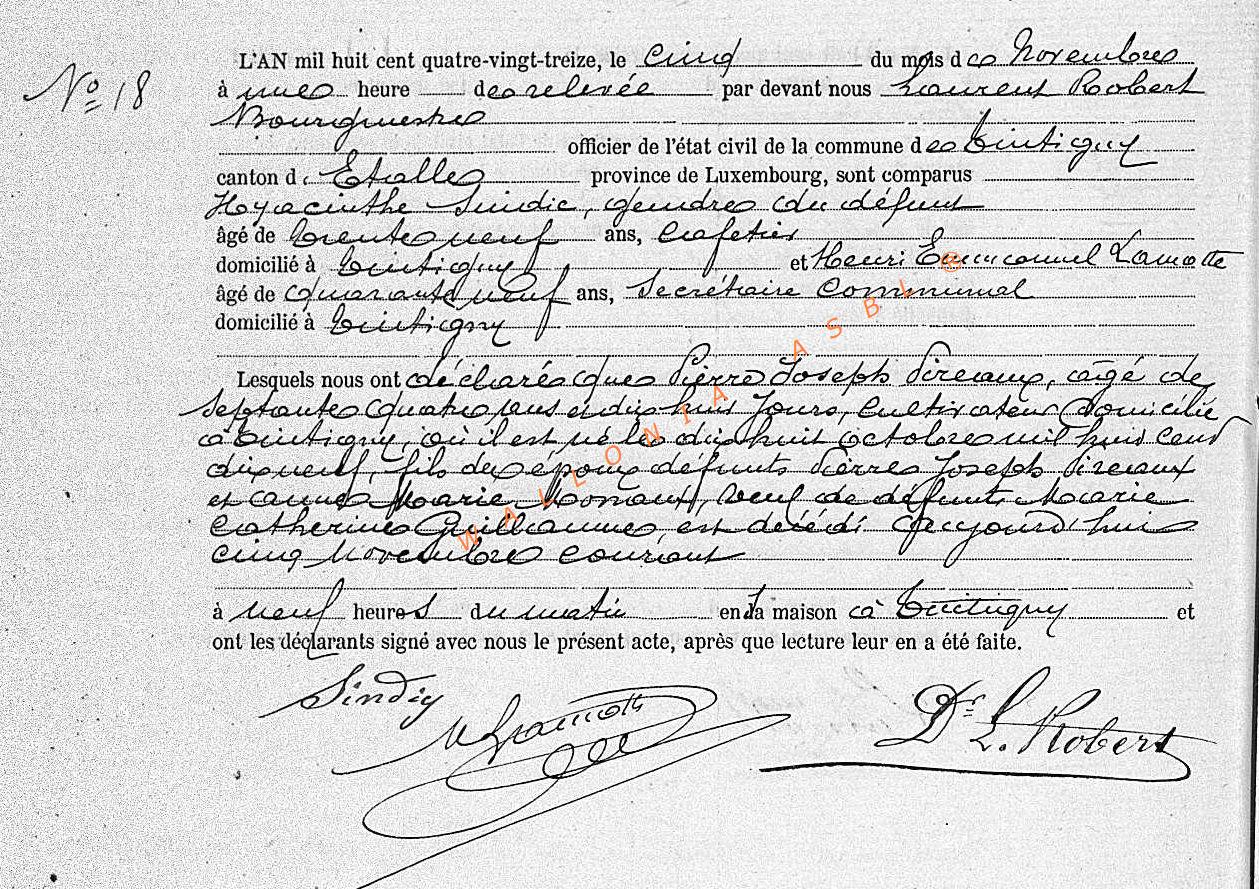 Nº 18
L'AN mil huit cent quatre-vingt-treize, le cinq du mois de Novembre
à une heure de relevée par devant nous Laurent Robert
Bourgmestre
officier de l'état civil de la commune de Tintigny
canton d'Etalle province de Luxembourg, sont comparus
Hyacinthe Sindic, gendre du défunt
âgé de trente neuf ans, Cafetier
domicilié à Tintigny et Henri Emmanuel Lamotte
âgé de quarante neuf ans, Secrétaire Communal
domicilié à Tintigny
Lesquels nous ont déclaré que Pierre Joseph Pireaux, âgé de
Septante quatre ans et dix huit Jours, Cultivateur domicilié
à Tintigny, où il est né le dix huit octobre mil huit cent
dix neuf, fils des époux défunts Pierre Joseph Pireaux
et Marie Monaux, veuf de défunte Marie
Catherine Guillaume, est décédé ce jourd'hui
cinq Novembre courant
à neuf heures du matin en la maison à Tintigny et
ont les déclarants signé avec nous le présent acte, après que lecture leur en a été faite.
Sindic
Lamotte
Dr L. Robert
WALLONIA ASBL ©